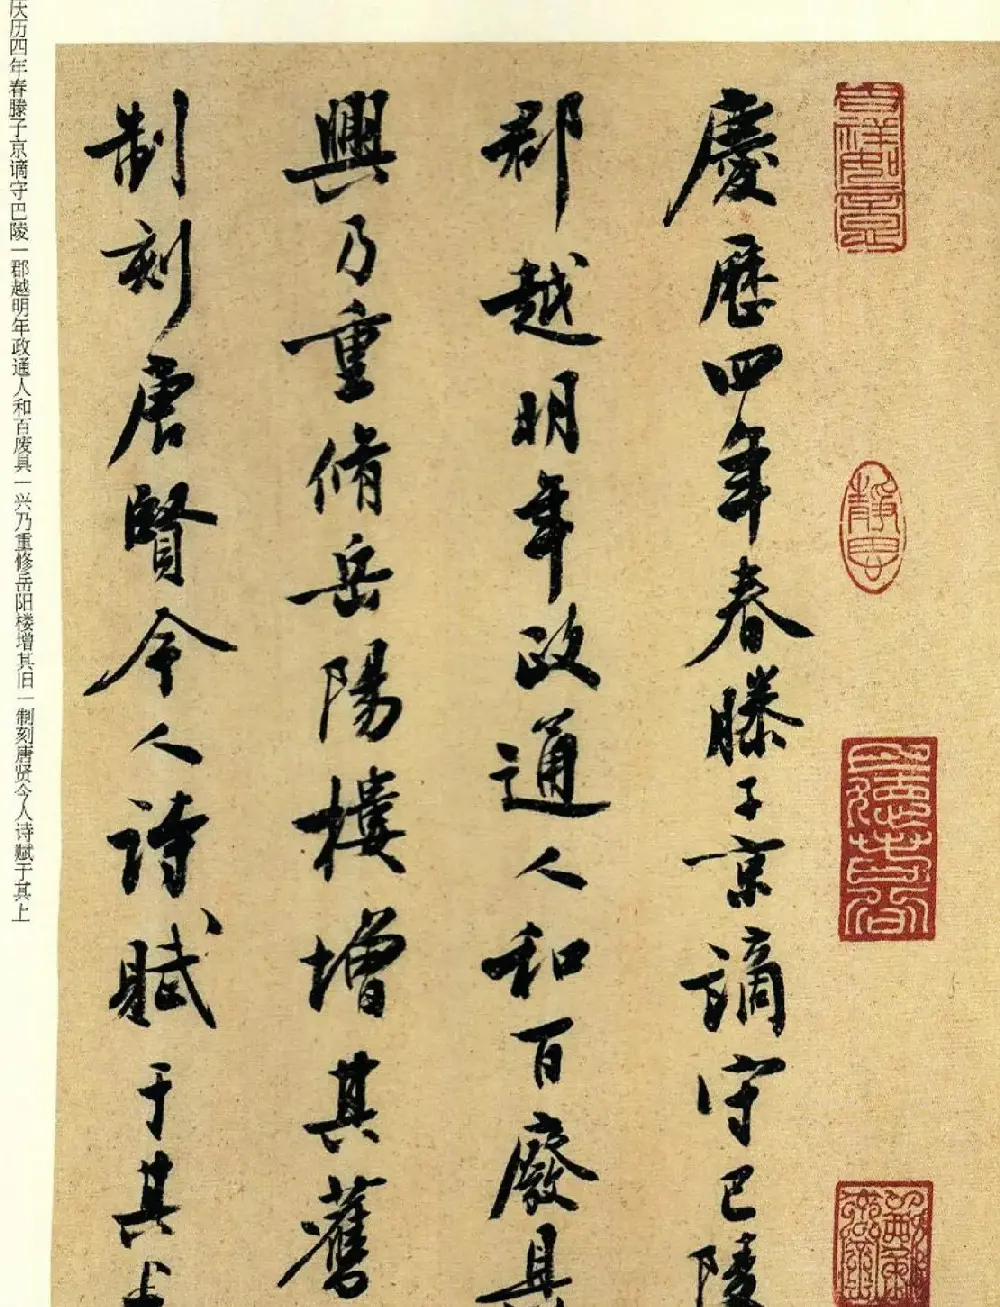 慶歷四年春滕子京謫守巴陵
郡越明年政通人和百廢具
興乃重脩岳陽樓增其舊
制刻唐賢今人詩賦于其上
庆历四年春滕子京谪守巴陵一郡越明年政通人和百废具一兴乃重修岳阳楼增其旧一制刻唐贤今人诗赋于其上